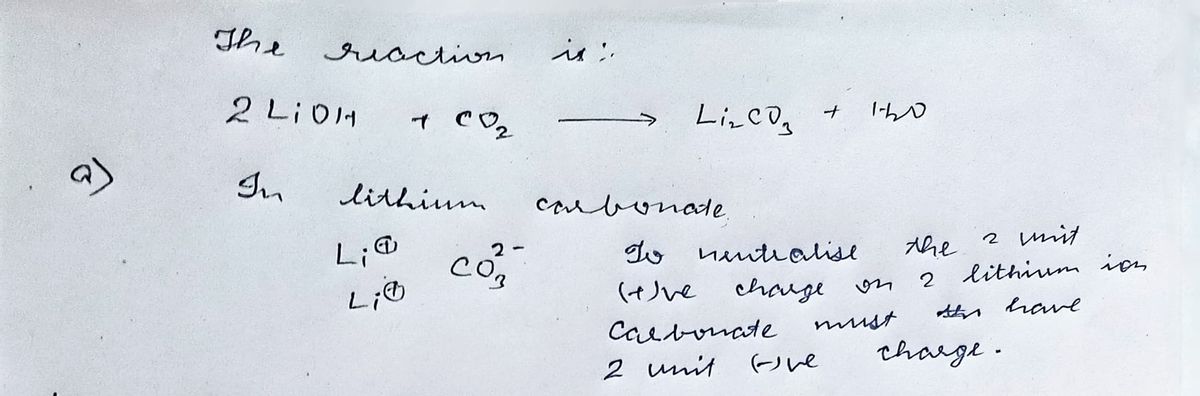 The reaction is :
2 LiOH + CO₂ ⟶ Li₂CO₃ + H₂O
a) In lithium carbonate
Li⊕ CO₃²⁻
Li⊕
To neutralise the 2 unit
(+)ve charge on 2 lithium ion
Carbonate must have
2 unit (-)ve charge.